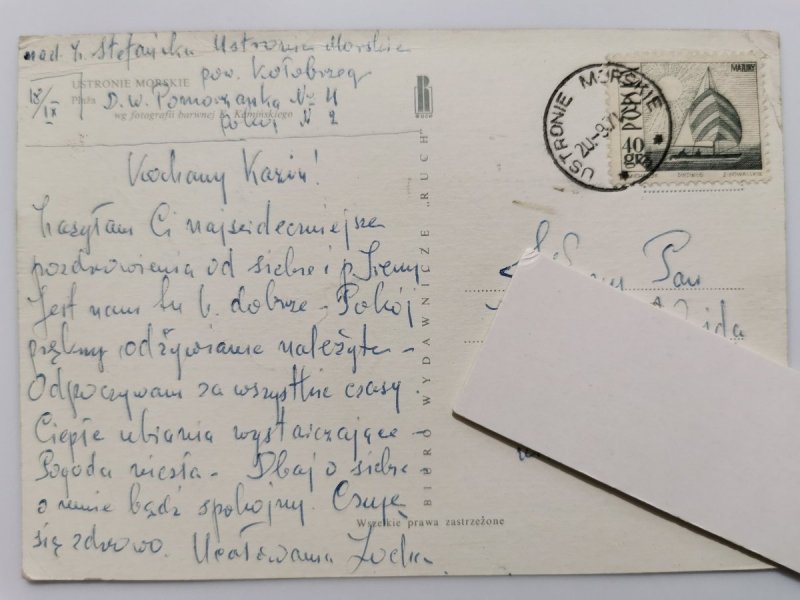 nad. Z. Stefańska Ustronie Morskie
pow. Kołobrzeg
18/IX D.W. Pomorzanka № 11
Pokój № 2
USTRONIE MORSKIE
Plaża
wg fotografii barwnej K. Kamińskiego
Kochany Kaziu!
Zasyłam Ci najserdeczniejsze
pozdrowienia od siebie i p. Ireny
Jest nam tu b. dobrze – Pokój
piękny odżywianie należyte –
Odpoczywam za wszystkie czasy
Ciepłe ubrania wystarczające –
Pogoda niezła – Dbaj o siebie
o mnie bądź spokojny. Czuję
się zdrowo. Ucałowania Zocha
BIURO WYDAWNICZE „RUCH"
RUCH
Wszelkie prawa zastrzeżone
USTRONIE MORSKIE
20.-9.71
MAZURY
POLSKA
40
gr
Pan